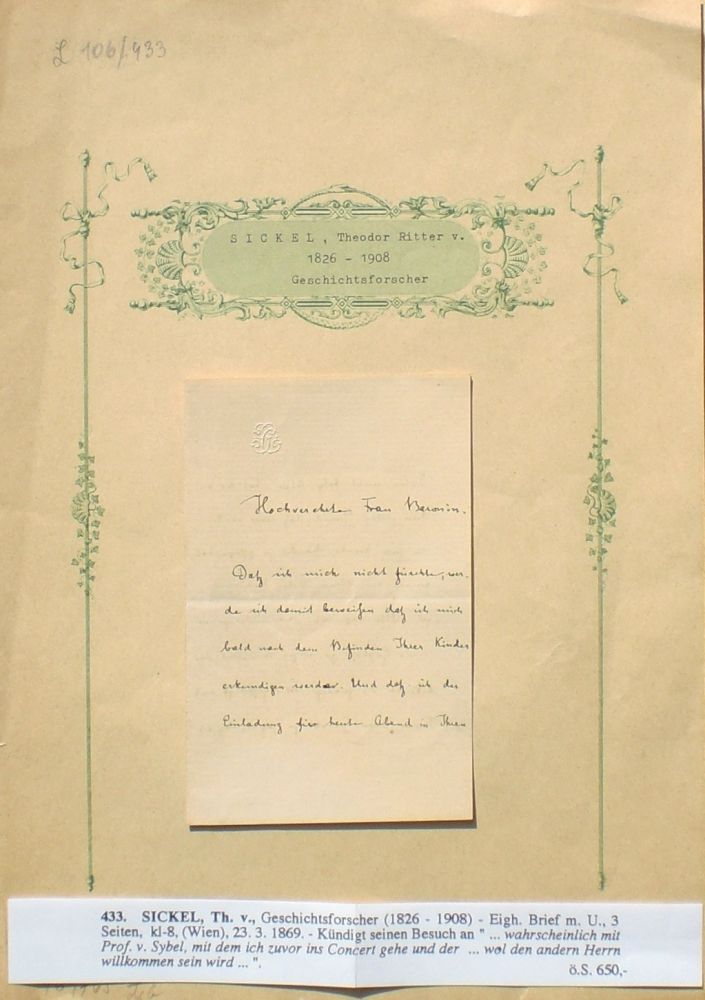 L 106/433
SICKEL, Theodor Ritter v.
1826 - 1908
Geschichtsforscher
Hochverehrte Frau Baronin.
Daß ich mich nicht fürchte, wer-
de ich damit beweisen daß ich mich
bald nach dem Befinden Ihrer Kinder
erkundigen werde. Und daß ich der
Einladung für heute Abend in Ihren
433. SICKEL, Th. v., Geschichtsforscher (1826 - 1908) - Eigh. Brief m. U., 3
Seiten, kl-8, (Wien), 23. 3. 1869. - Kündigt seinen Besuch an " ... wahrscheinlich mit
Prof. v. Sybel, mit dem ich zuvor ins Concert gehe und der ... wol den andern Herrn
willkommen sein wird ... ".
ö.S. 650,-